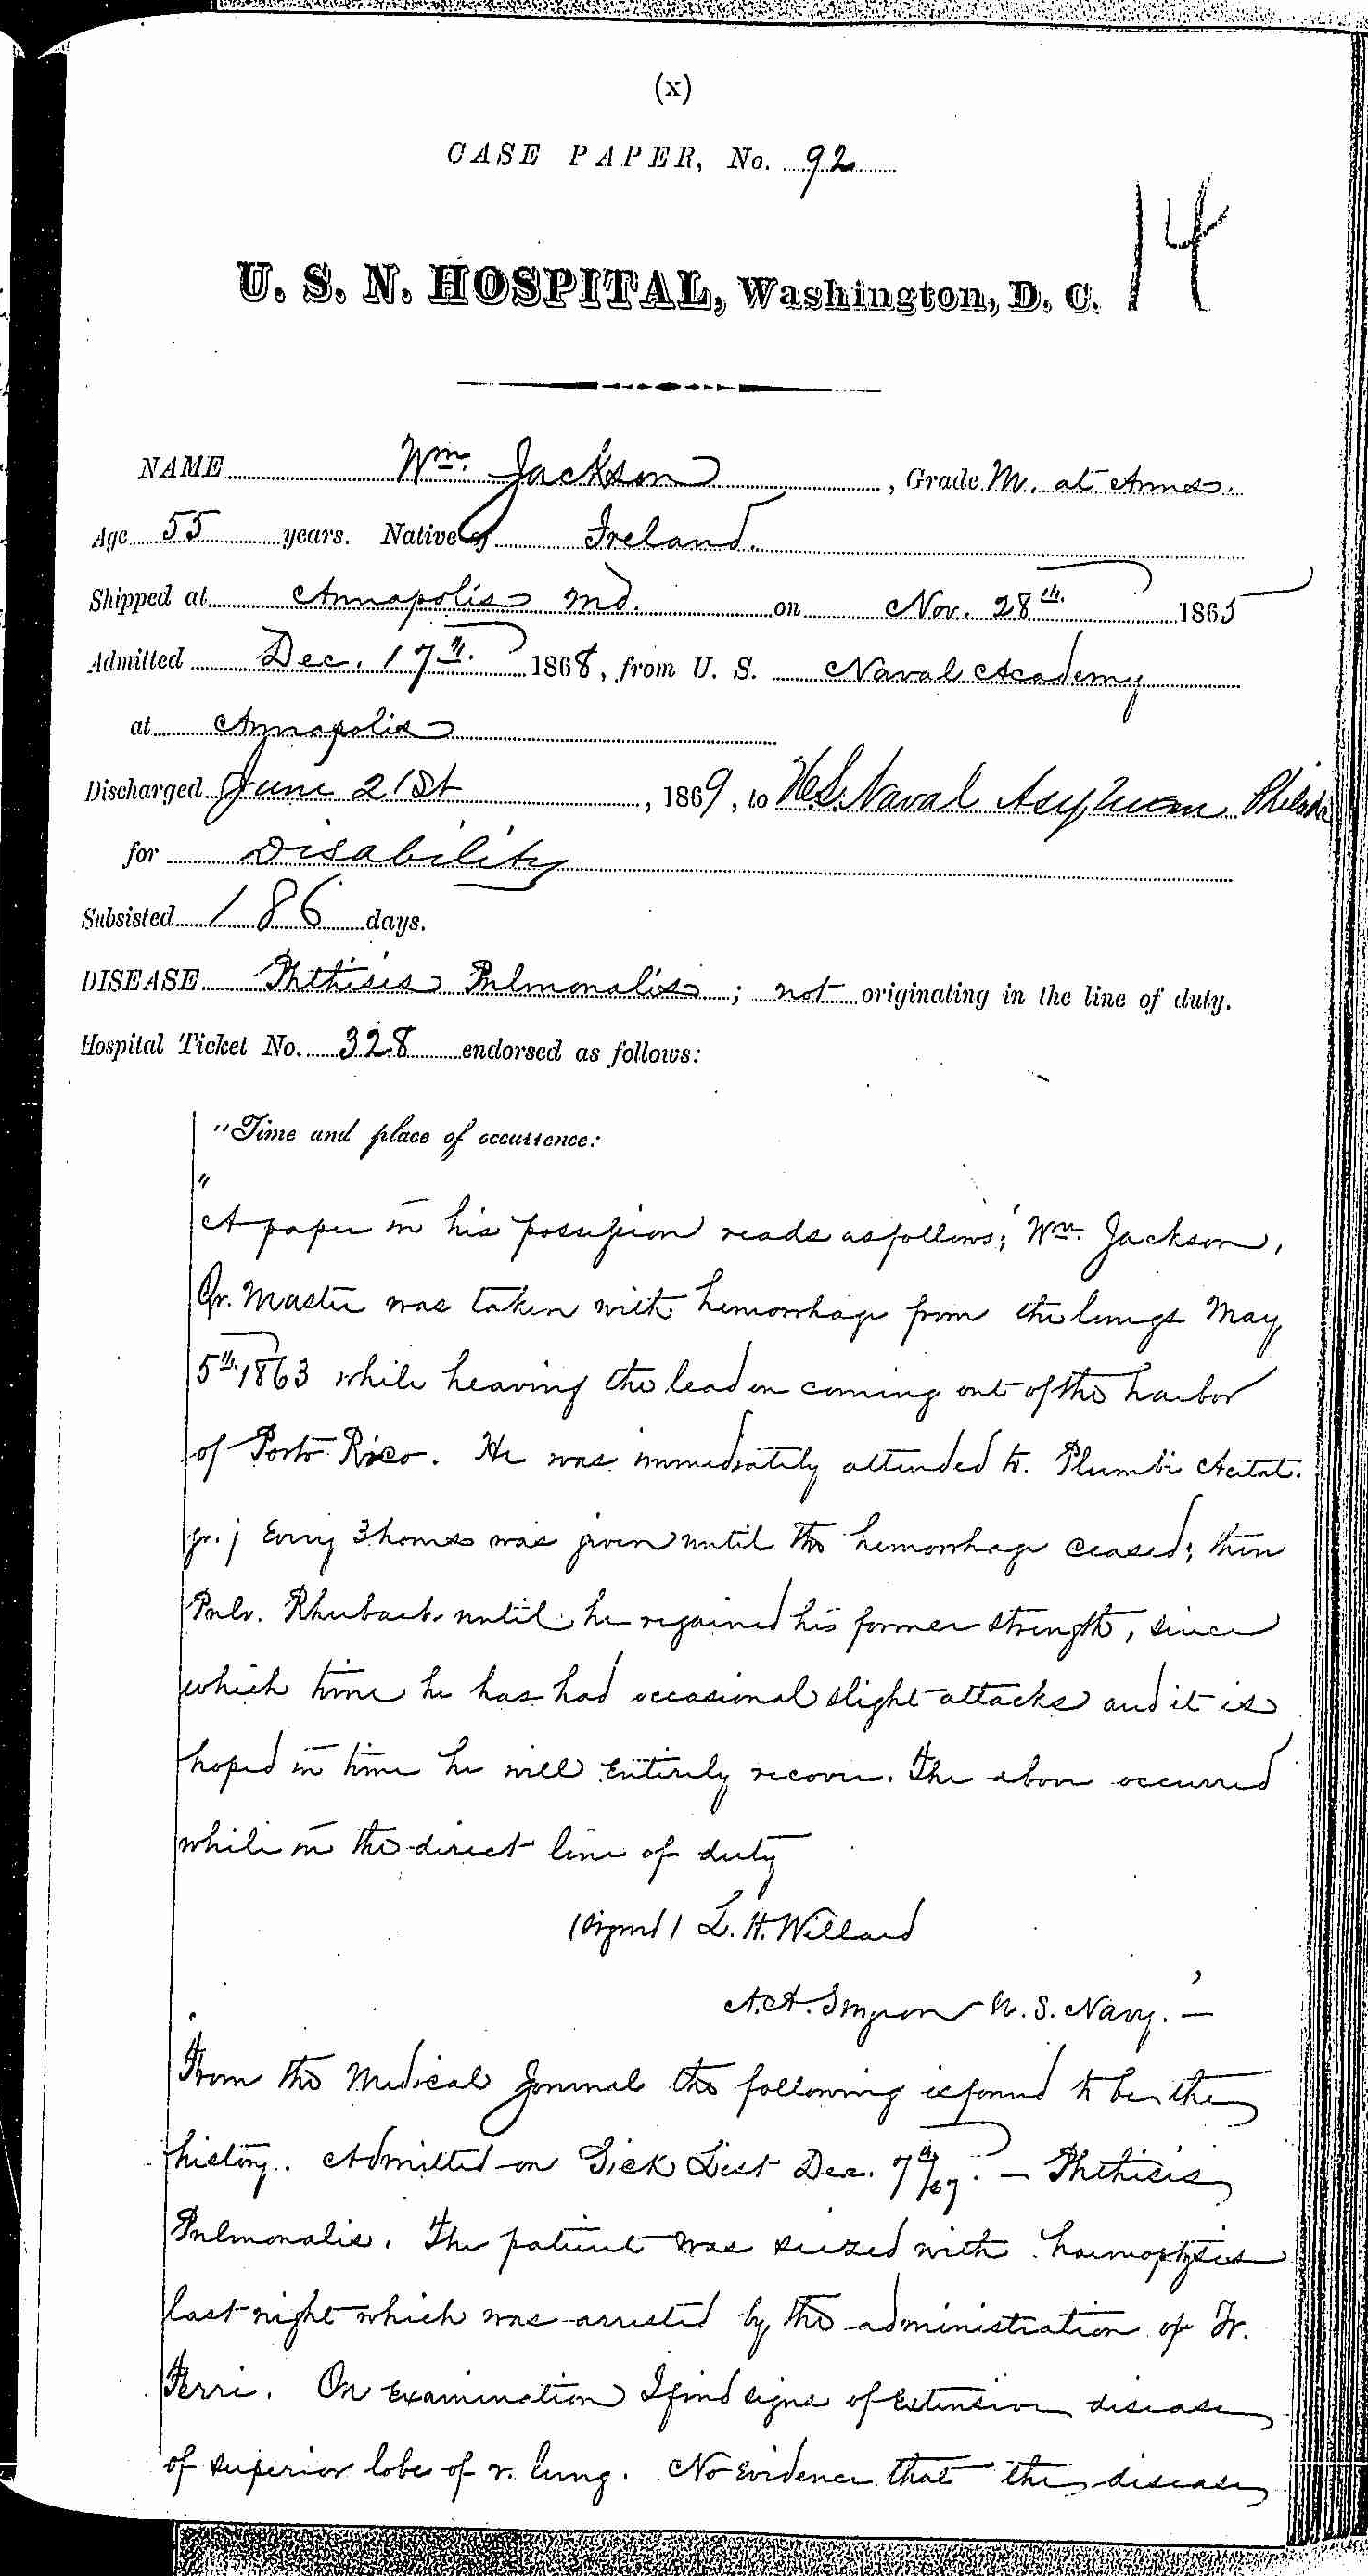 (x)
CASE PAPER, No. 92
14
U. S. N. HOSPITAL, Washington, D. C.
NAME Wm. Jackson, Grade M. at Arms.
Age 55 years. Native of Ireland.
Shipped at Annapolis Md. on Nov. 28th. 1865
Admitted Dec. 17th. 1868, from U. S. Naval Academy
at Annapolis
Discharged June 21st, 1869, to U.S. Naval Asylum Philada
for Disability
Subsisted 186 days.
DISEASE Phthisis Pulmonalis; not originating in the line of duty.
Hospital Ticket No. 328 endorsed as follows:
"Time and place of occurrence:
"A paper in his possession reads as follows; 'Wm. Jackson,
Qr. Master was taken with hemorrhage from the lungs May
5th. 1863 while heaving the lead on coming out of the harbor
of Porto Rico. He was immediately attended to. Plumbi Acetat.
gr. j every 3 hours was given until the hemorrhage ceased; then
Pulv. Rhubarb. until he regained his former strength, since
which time he has had occasional slight attacks and it is
hoped in time he will entirely recover. The above occurred
while in the direct line of duty
(Signed) L. H. Willard
A. A. Surgeon U. S. Navy.' —
From the Medical Journal the following is found to be the
history. Admitted on Sick List Dec. 7th/67. — Phthisis
Pulmonalis. The patient was seized with haemoptysis
last night which was arrested by the administration of Tr.
Ferri. On examination I find signs of extensive disease
of superior lobe of r. lung. No evidence that the disease